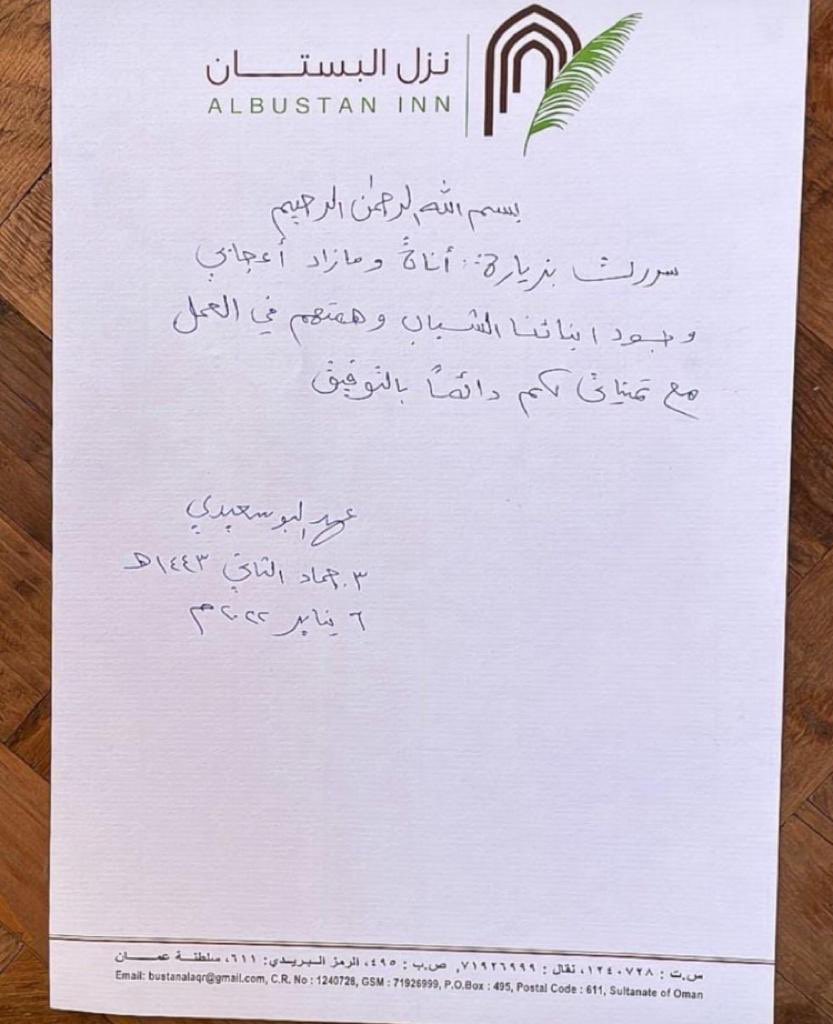 نزل البستان
ALBUSTAN INN
بسم الله الرحمن الرحيم
سررت بزيارة: أناة ومازاد أعجابي
وجود ابنائنا الشباب وهمتهم في العمل
مع تمنياتي لكم دائماً بالتوفيق
عهد البوسعيدي
٣ جماد الثاني ١٤٤٣هـ
٦ يناير ٢٠٢٢م
س.ت : ١٢٤٠٧٢٨، نقال : ٧١٩٢٦٩٩٩, ص.ب : ٤٩٥، الرمز البريدي: ٦١١، سلطنة عمان
Email: bustanalaqr@gmail.com, C.R. No : 1240728, GSM : 71926999, P.O.Box : 495, Postal Code : 611, Sultanate of Oman